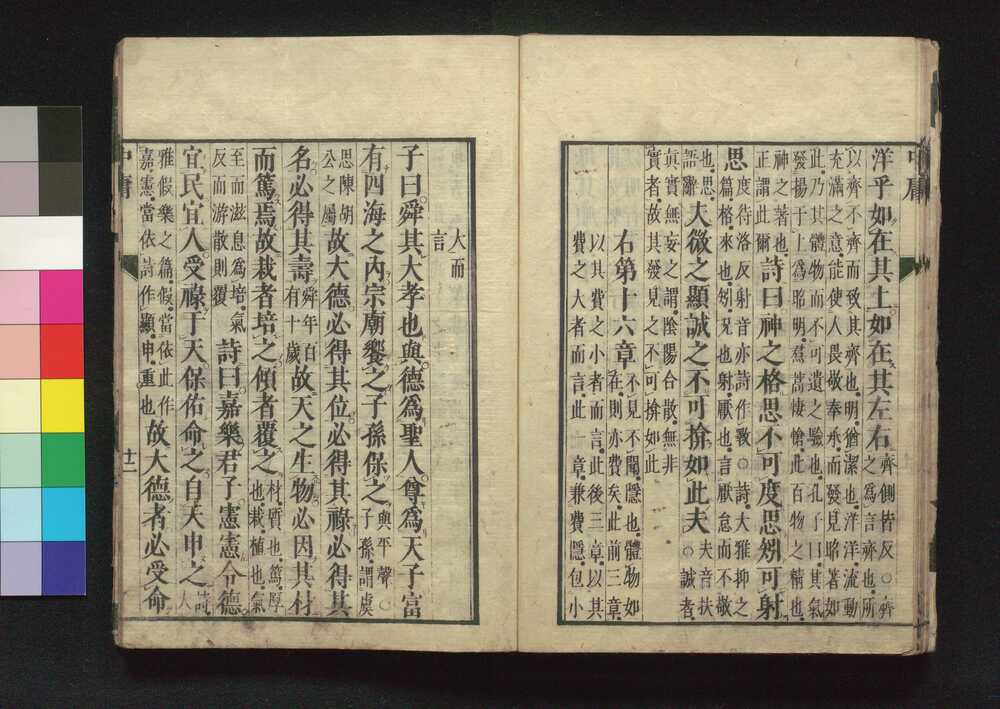 中庸
洋乎如在其上如在其左右齊側皆反○齊之爲言齊也所
以齊不齊而致其齊也明猶潔也洋洋流動
充滿之意能使人畏敬奉承而發見昭著如
此乃其體物而不可遺之驗也孔子曰其氣
發揚于上爲昭明焄蒿悽愴此百物之精也
神之著也正謂此爾詩曰神之格思不可度思矧可射
思度待洛反射音亦詩作斁○詩大雅抑之篇格來也矧况也射厭也言厭怠而不敬
也思語辭夫微之顯誠之不可揜如此夫夫音扶○誠者
眞實無妄之謂陰陽合散無非
實者故其發見之不可揜如此
右第十六章不見不聞隱也體物如在則亦費矣此前三章
以其費之小者而言此後三章以其
費之大者而言此一章兼費隱包小
大而
言
子曰舜其大孝也與德爲聖人尊爲天子富
有四海之內宗廟饗之子孫保之與平聲○子孫謂虞
思陳胡公之屬故大德必得其位必得其祿必得其
名必得其壽舜年百有十歲故天之生物必因其材
而篤焉故栽者培之傾者覆之材質也篤厚也栽植也氣
至而滋息爲培氣反而游散則覆詩曰嘉樂君子憲憲令德
宜民宜人受祿于天保佑命之自天申之詩大
雅假樂之篇假當依此作嘉憲當依詩作顯申重也故大德者必受命
中庸
十二